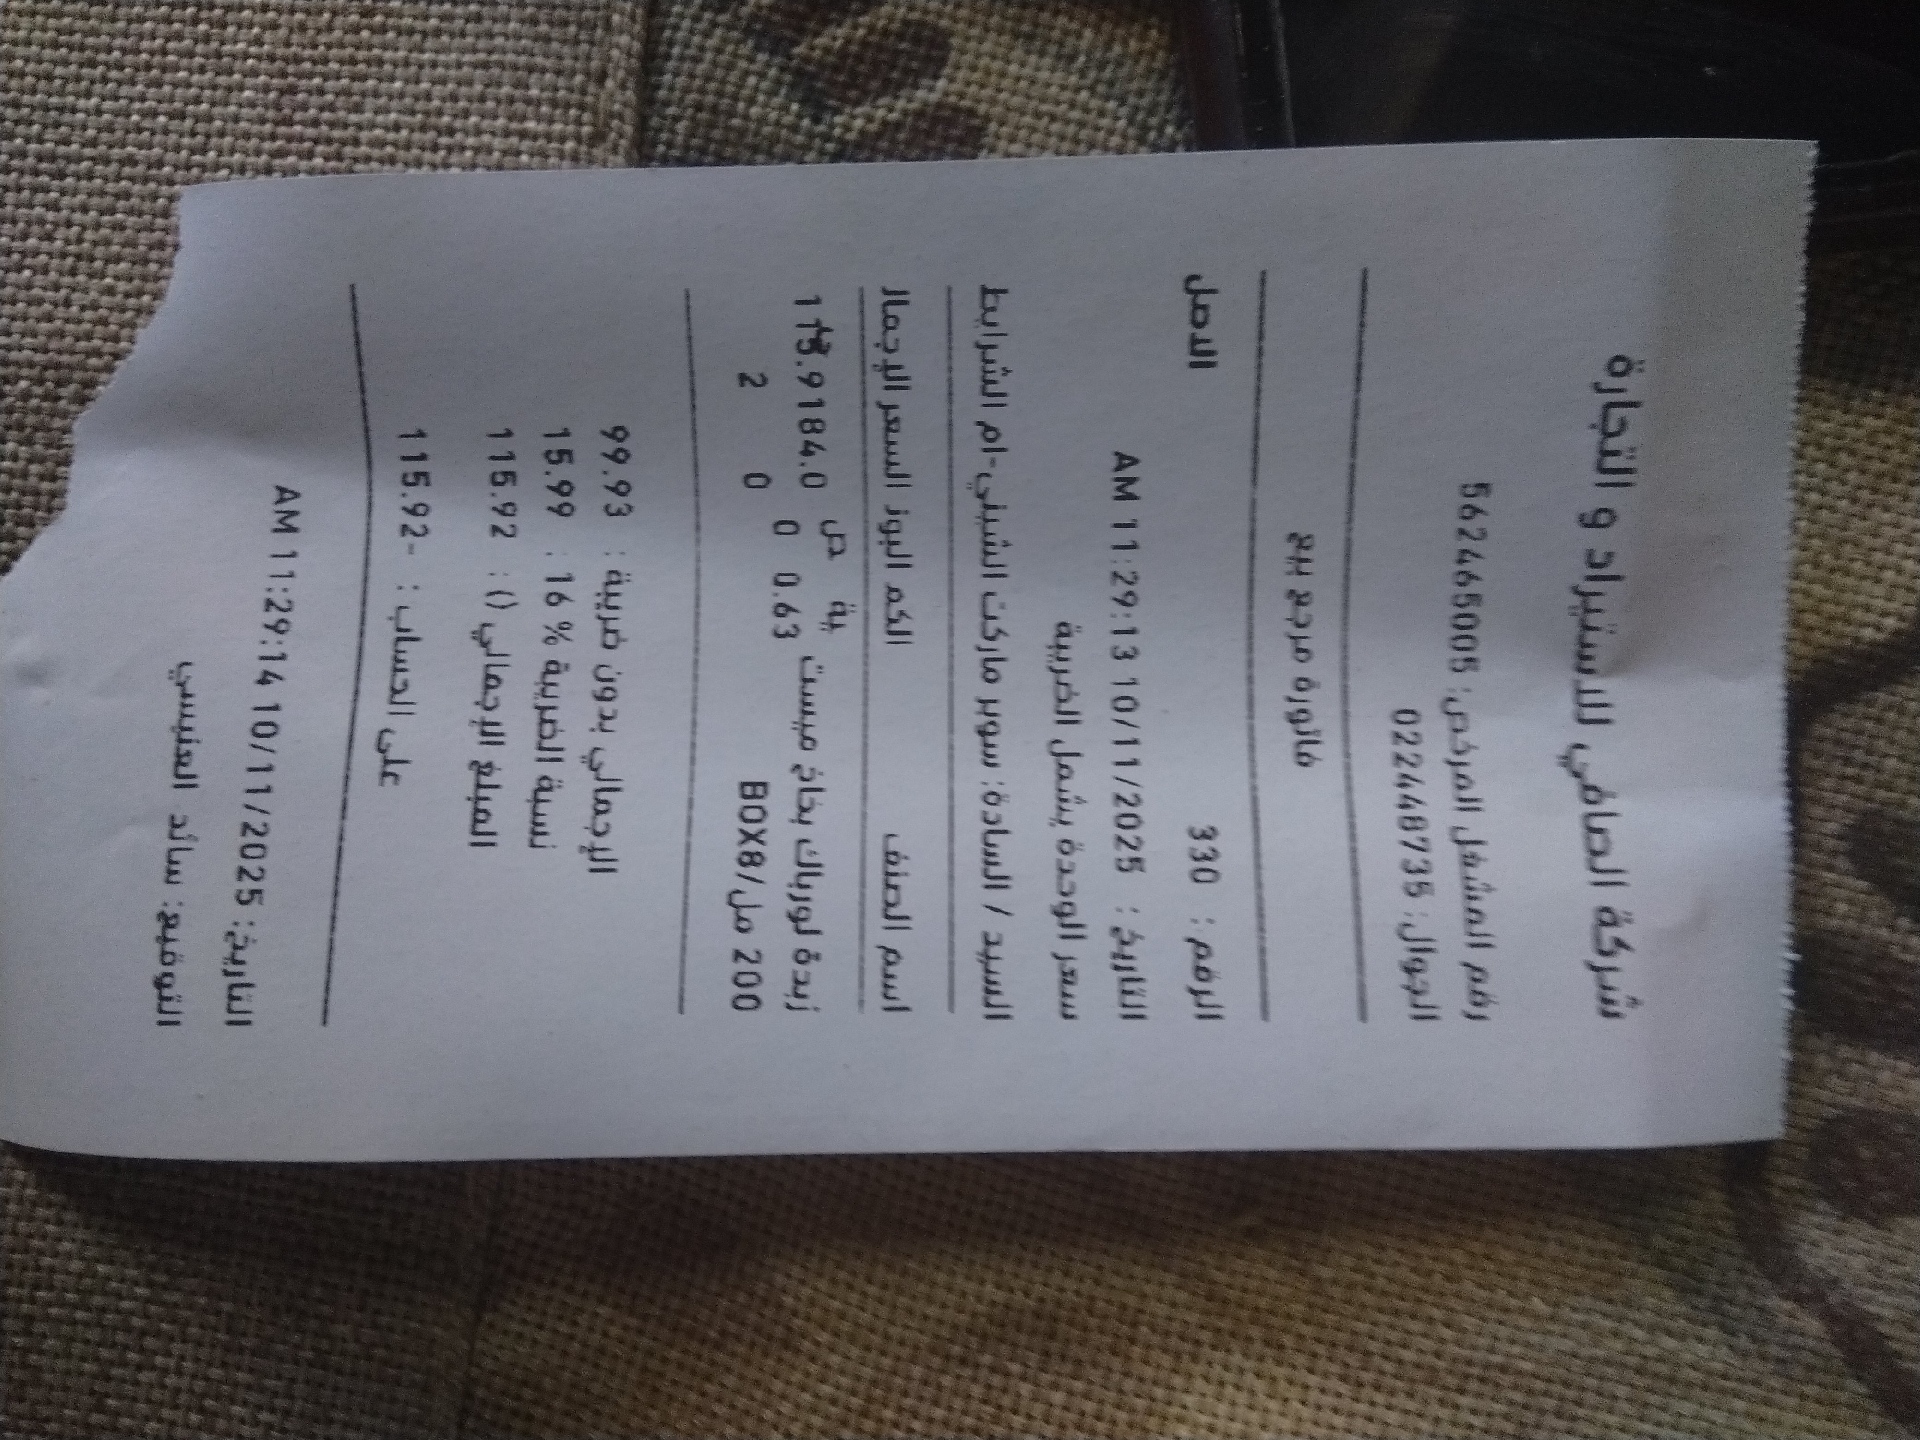 شركة الصافي للاستيراد و التجارة
رقم المشغل المرخص: 562465005
الجوال: 022448735
فاتورة مرجع بيع
الرقم : 330 الاصل
التاريخ : 10/11/2025 11:29:13 AM
سعر الوحدة يشمل الضريبة
السيد / السادة: سوبر ماركت الشيني-ام الشرايط
اسم الصنف الكم البوز السعر الإجمال
ية ص
زبدة لورباك بخاخ ميست 0.63 0 184.0
200 مل/BOX8 0 2
الإجمالي بدون ضريبة : 99.93
نسبة الضريبة % 16 : 15.99
المبلغ الإجمالي () : 115.92
على الحساب : -115.92
التاريخ: 10/11/2025 11:29:14 AM
التوقيع: سائد العنبسي